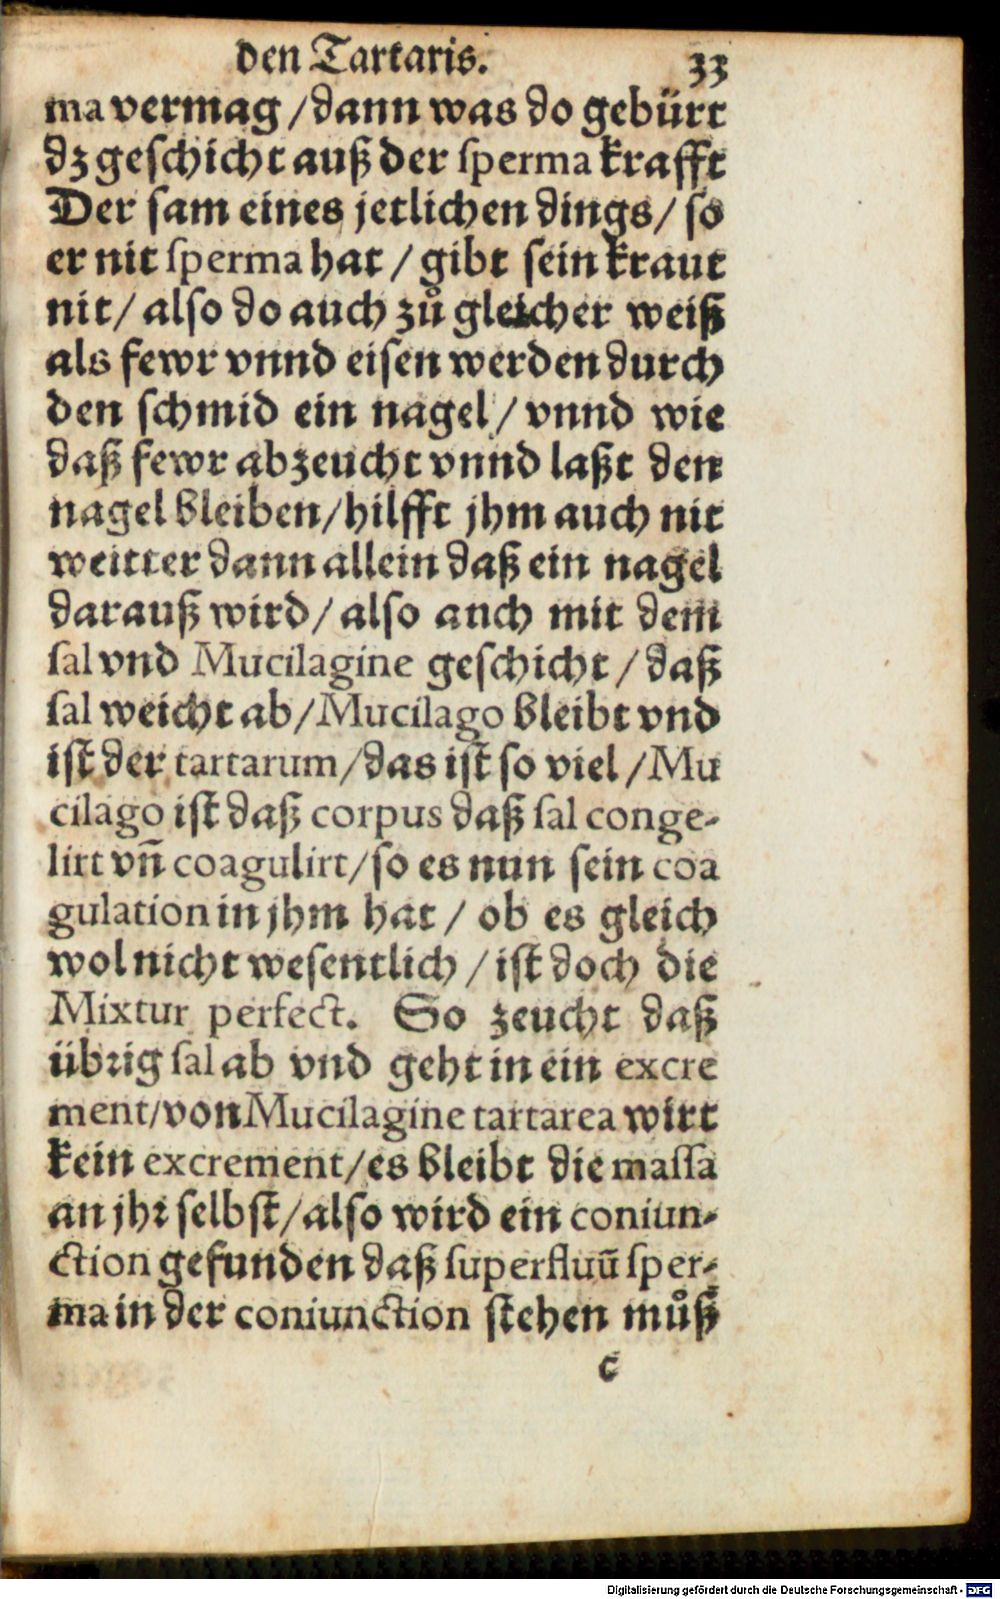 den Tartaris. 33
ma vermag / dann was do gebürt
dz geschicht auß der sperma krafft
Der sam eines jetlichen dings / so
er nit sperma hat / gibt sein kraut
nit / also do auch zů gleicher weiß
als fewr vnnd eisen werden durch
den schmid ein nagel / vnnd wie
daß fewr abzeucht vnnd laßt den
nagel bleiben / hilfft jhm auch nit
weitter dann allein daß ein nagel
darauß wird / also auch mit dem
sal vnd Mucilagine geschicht / daß
sal weicht ab / Mucilago bleibt vnd
ist der tartarum / das ist so viel / Mu
cilago ist daß corpus daß sal conge-
lirt vñ coagulirt / so es nun sein coa
gulation in jhm hat / ob es gleich
wol nicht wesentlich / ist doch die
Mixtur perfect. So zeucht daß
übrig sal ab vnd geht in ein excre
ment / von Mucilagine tartarea wirt
kein excrement / es bleibt die massa
an jhr selbst / also wird ein coniun-
ction gefunden daß superfluũ sper-
ma in der coniunction stehen můß
c
Digitalisierung gefördert durch die Deutsche Forschungsgemeinschaft - DFG